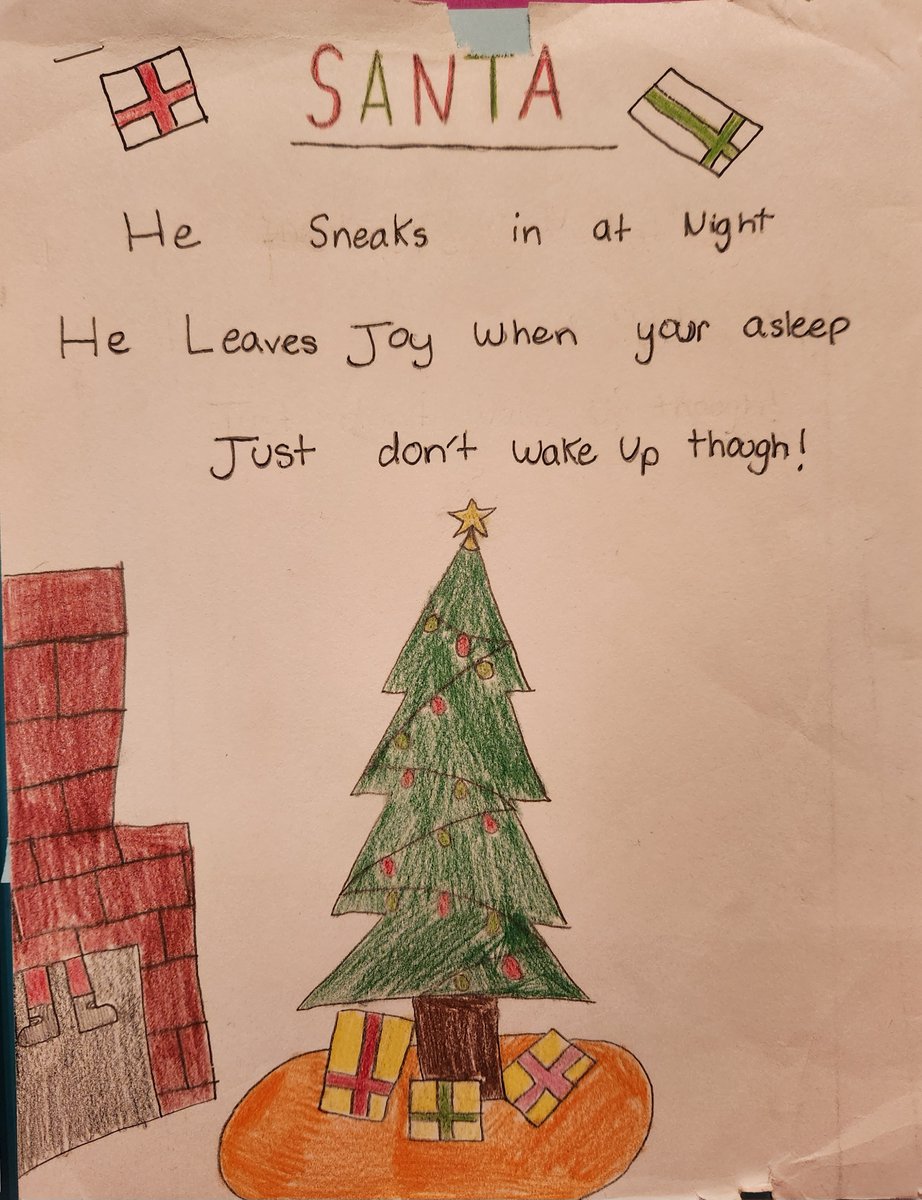 SANTA
He Sneaks in at Night
He Leaves Joy when your asleep
Just don't wake Up though!